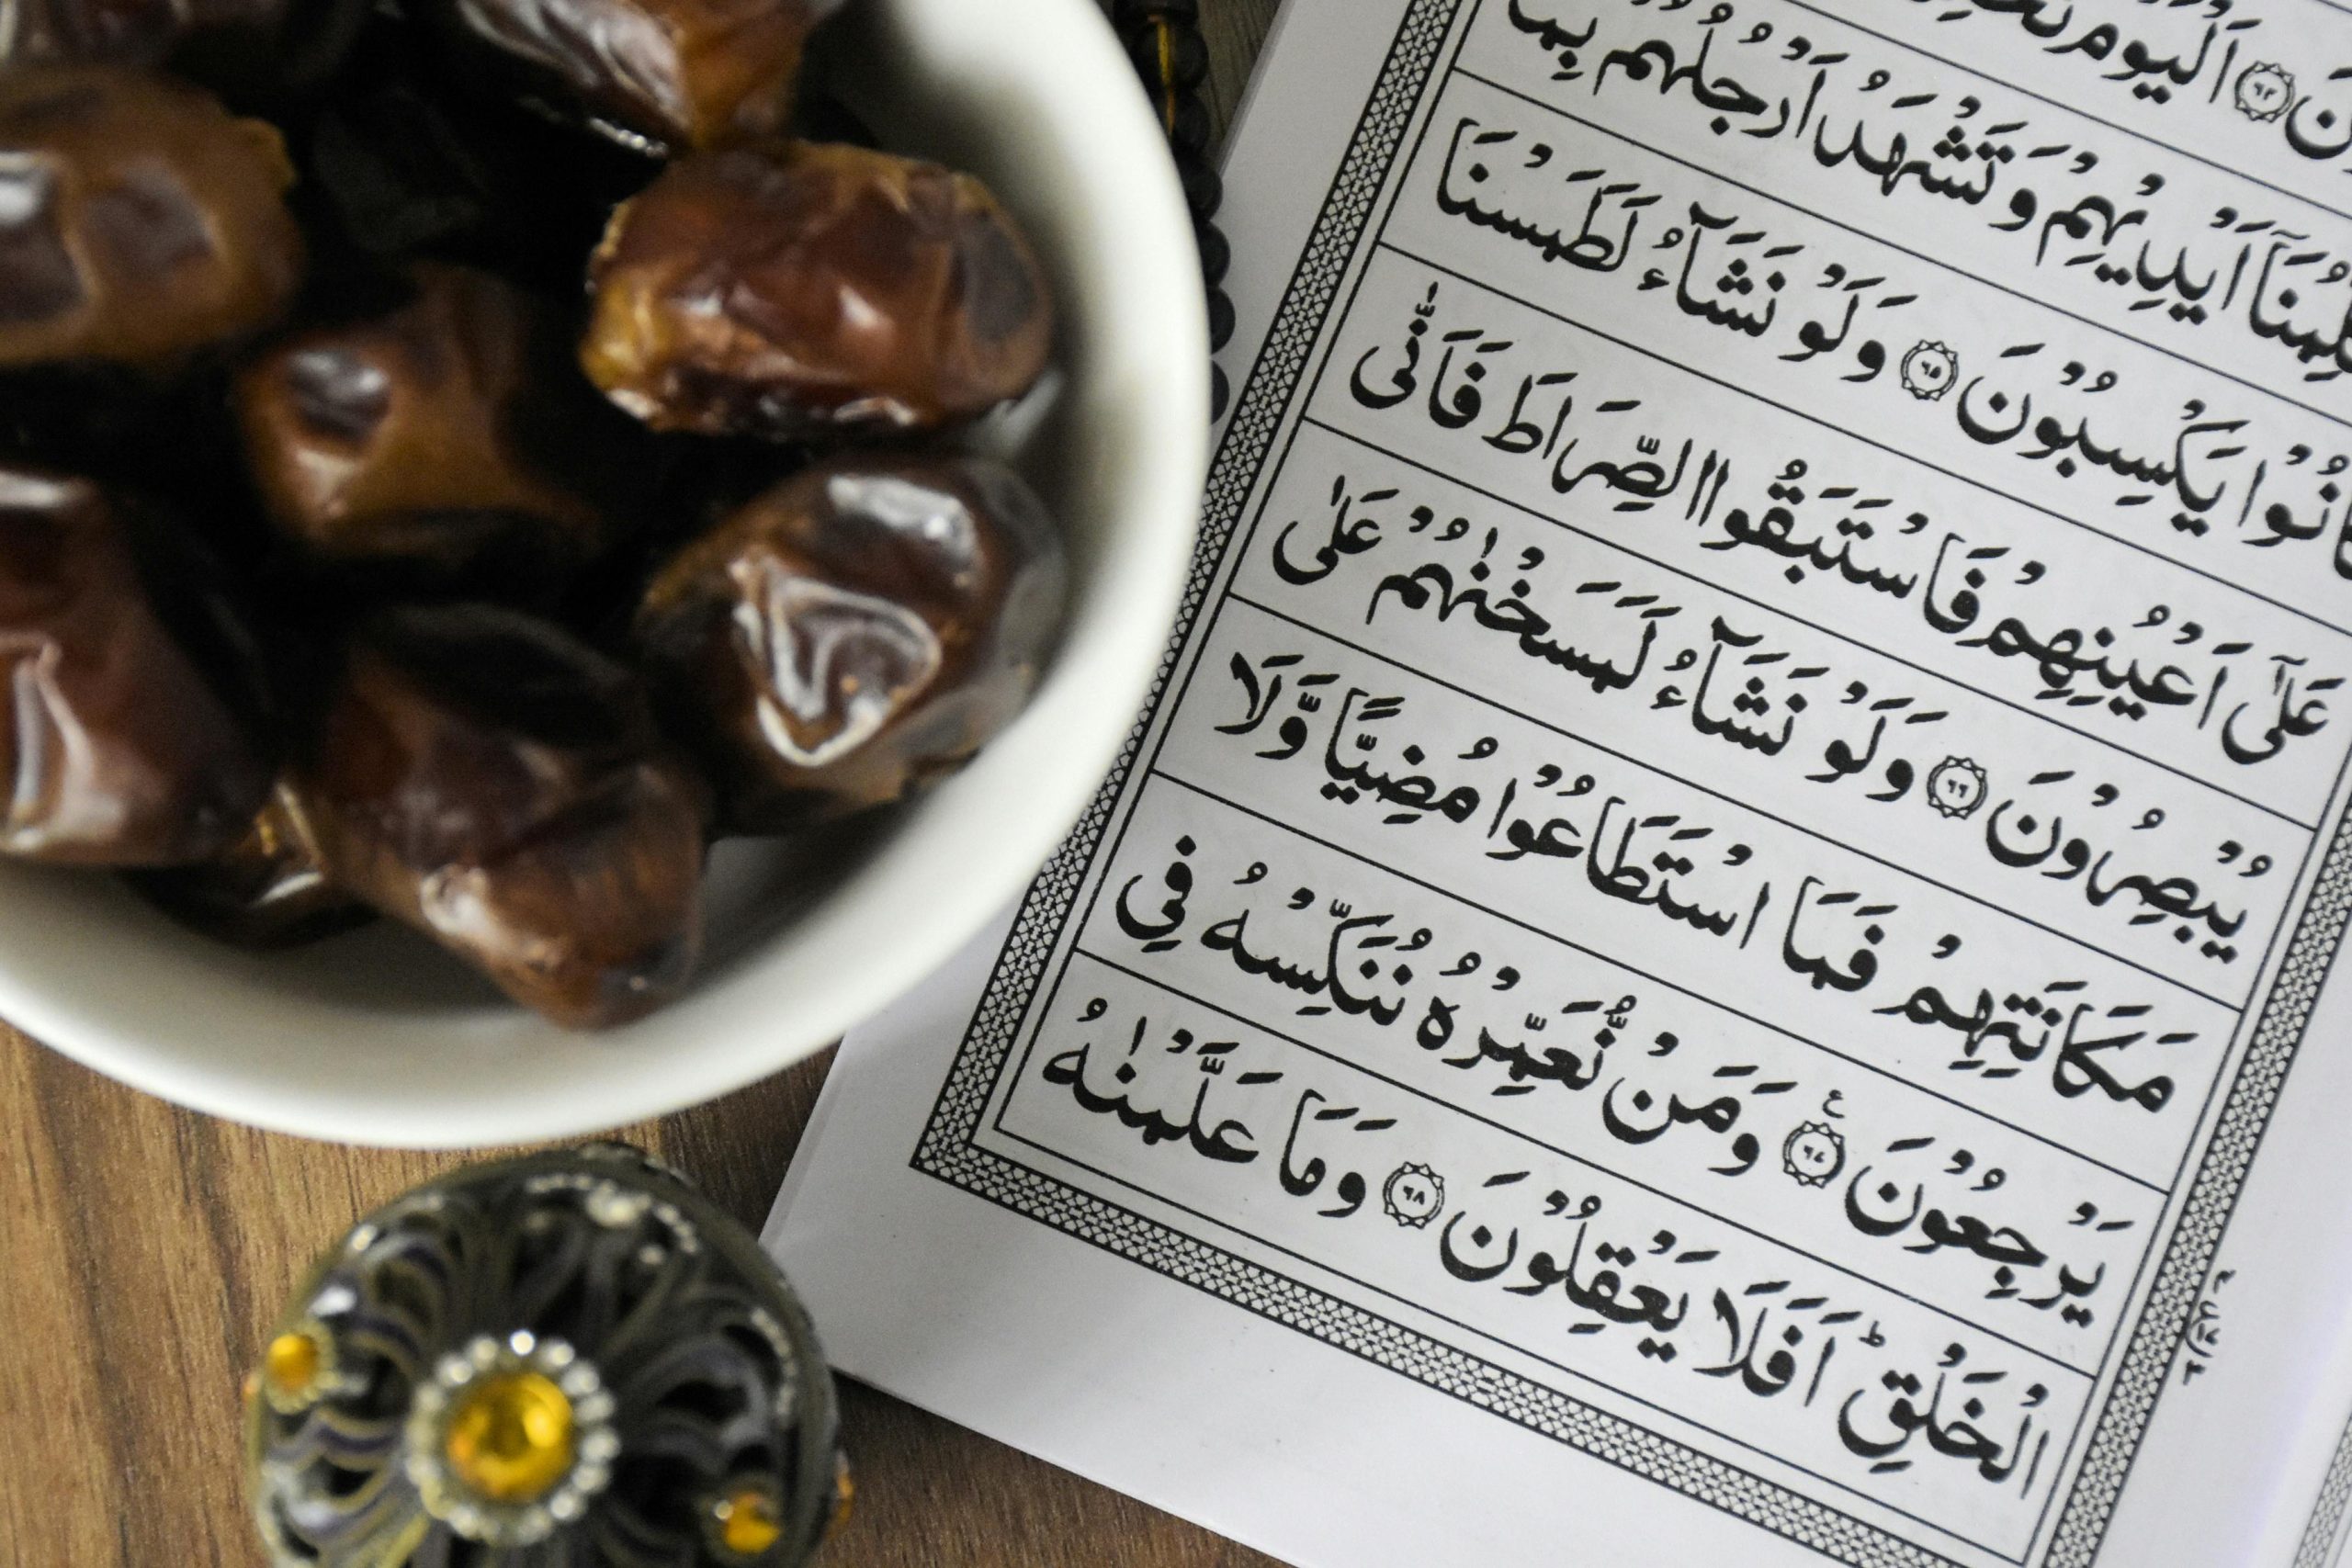 ۝٦٣ اَلْيَوْمَ
اَيْدِيْهِمْ وَتَشْهَدُ اَرْجُلُهُمْ بِمَا
يَكْسِبُوْنَ ۝٦٥ وَلَوْ نَشَآءُ لَطَمَسْنَا
عَلٰٓى اَعْيُنِهِمْ فَاسْتَبَقُوا الصِّرَاطَ فَاَنّٰى
يُبْصِرُوْنَ ۝٦٦ وَلَوْ نَشَآءُ لَمَسَخْنٰهُمْ عَلٰى
مَكَانَتِهِمْ فَمَا اسْتَطَاعُوْا مُضِيًّا وَّلَا
يَرْجِعُوْنَ ۝٦٧ ع وَمَنْ نُّعَمِّرْهُ نُنَكِّسْهُ فِى
الْخَلْقِؕ اَفَلَا يَعْقِلُوْنَ ۝٦٨ وَمَا عَلَّمْنٰهُ